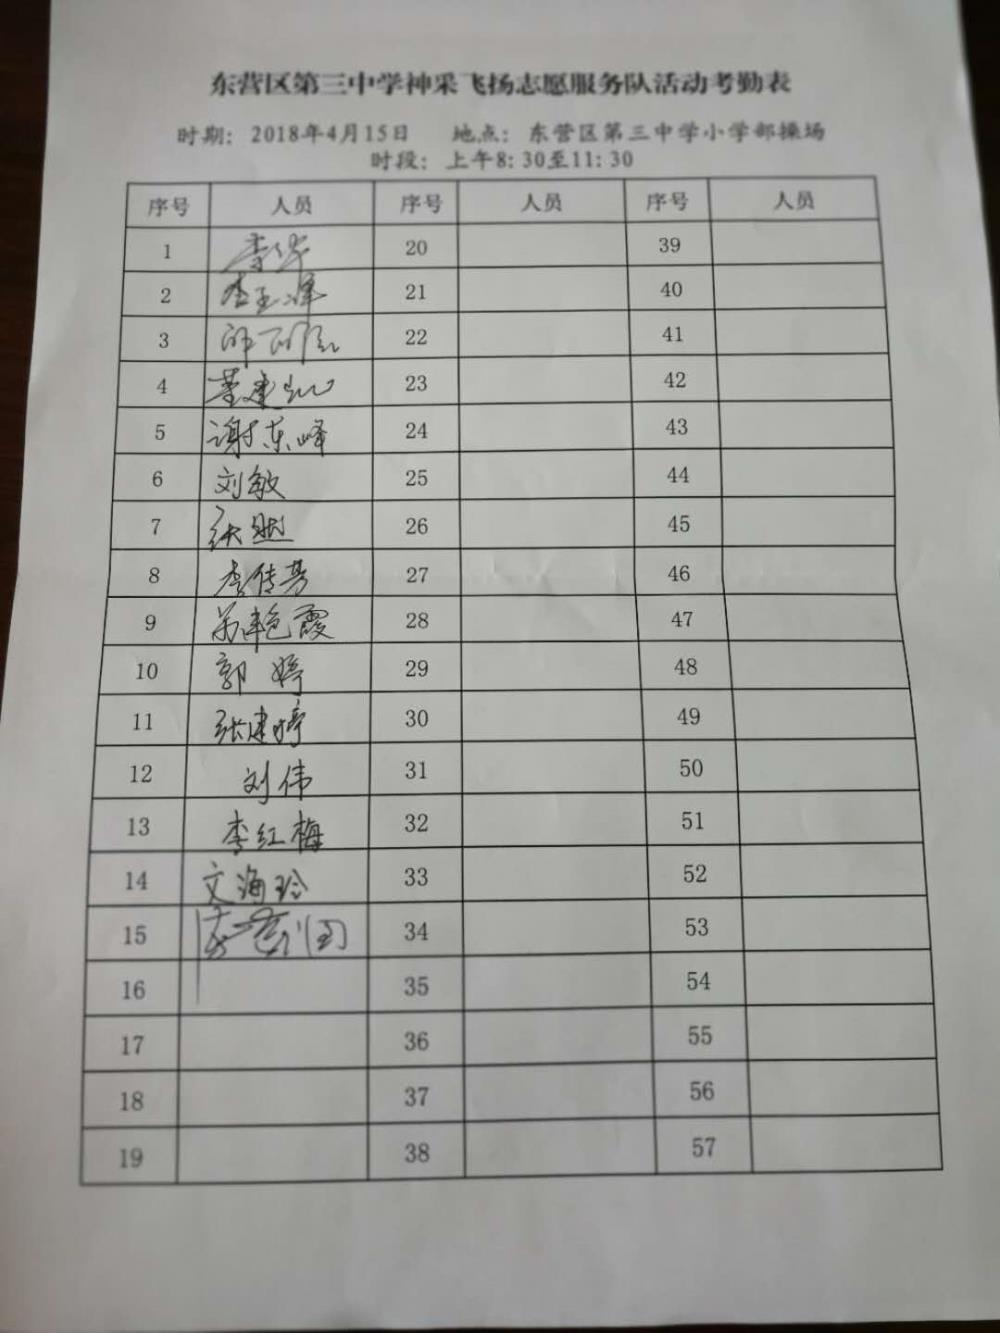 东营区第三中学神采飞扬志愿服务队活动考勤表
时期：2018年4月15日 地点：东营区第三中学小学部操场
时段：上午8:30至11:30
序号 人员 序号 人员 序号 人员
1 李华 20 39
2 李玉峰 21 40
3 22 41
4 董建 23 42
5 谢东峰 24 43
6 刘敏 25 44
7 张 26 45
8 李传芳 27 46
9 艳霞 28 47
10 郭婷 29 48
11 张建婷 30 49
12 刘伟 31 50
13 李红梅 32 51
14 文海玲 33 52
15 34 53
16 35 54
17 36 55
18 37 56
19 38 57